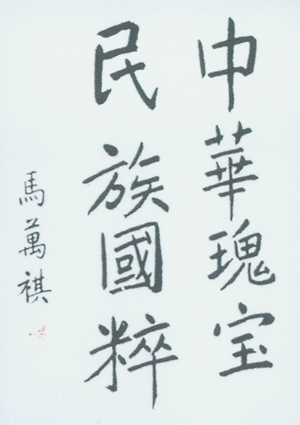 中華瑰宝
民族國粹
馬萬祺